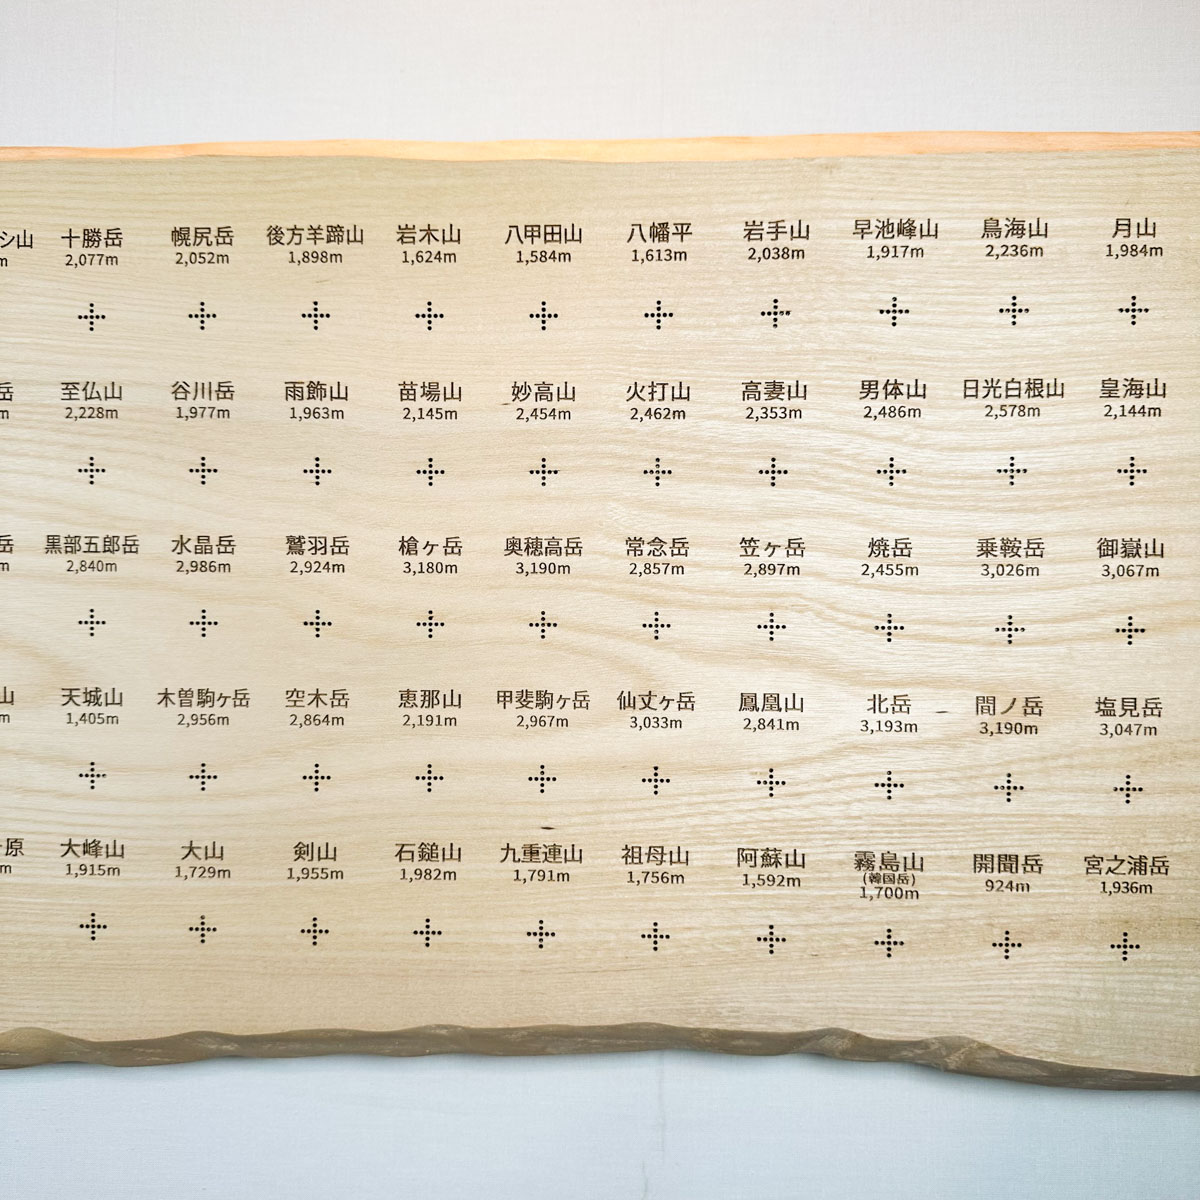 シ山 十勝岳 幌尻岳 後方羊蹄山 岩木山 八甲田山 八幡平 岩手山 早池峰山 鳥海山 月山
m 2,077m 2,052m 1,898m 1,624m 1,584m 1,613m 2,038m 1,917m 2,236m 1,984m
岳 至仏山 谷川岳 雨飾山 苗場山 妙高山 火打山 高妻山 男体山 日光白根山 皇海山
m 2,228m 1,977m 1,963m 2,145m 2,454m 2,462m 2,353m 2,486m 2,578m 2,144m
岳 黒部五郎岳 水晶岳 鷲羽岳 槍ヶ岳 奥穂高岳 常念岳 笠ヶ岳 焼岳 乗鞍岳 御嶽山
m 2,840m 2,986m 2,924m 3,180m 3,190m 2,857m 2,897m 2,455m 3,026m 3,067m
山 天城山 木曽駒ヶ岳 空木岳 恵那山 甲斐駒ヶ岳 仙丈ヶ岳 鳳凰山 北岳 間ノ岳 塩見岳
m 1,405m 2,956m 2,864m 2,191m 2,967m 3,033m 2,841m 3,193m 3,190m 3,047m
原 大峰山 大山 剣山 石鎚山 九重連山 祖母山 阿蘇山 霧島山 開聞岳 宮之浦岳
(韓国岳)
m 1,915m 1,729m 1,955m 1,982m 1,791m 1,756m 1,592m 1,700m 924m 1,936m